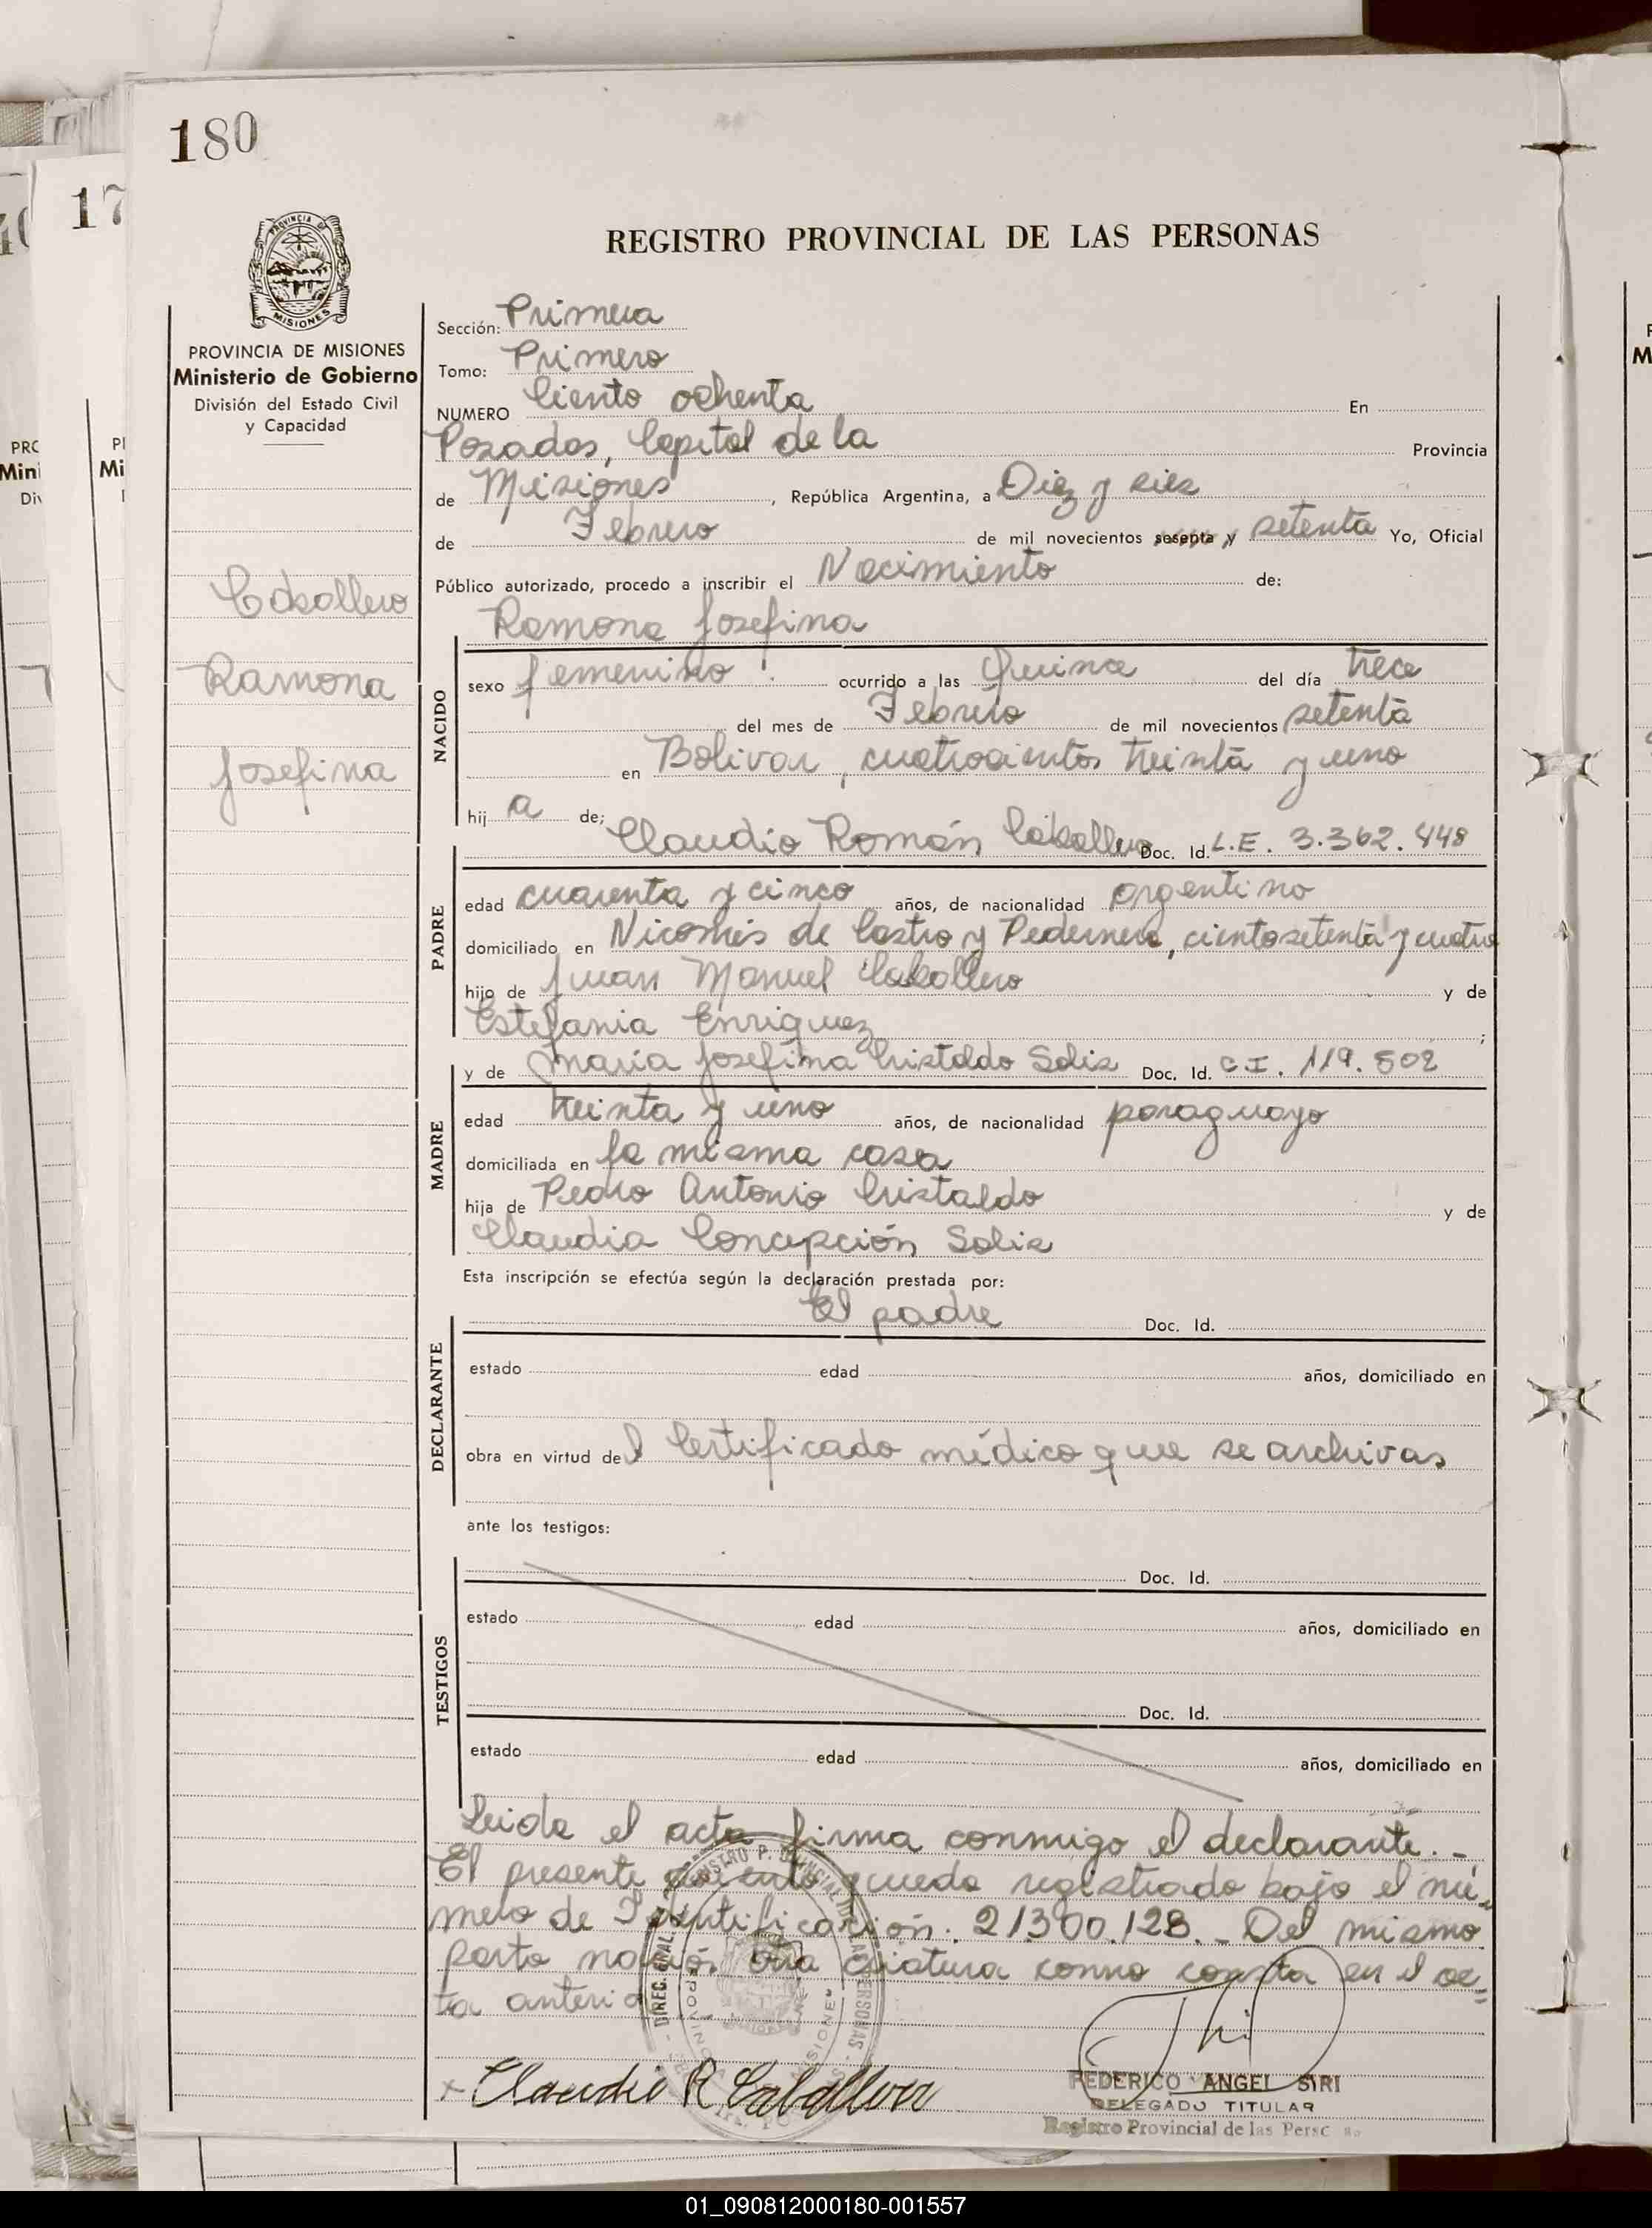 180
17
REGISTRO PROVINCIAL DE LAS PERSONAS
PROVINCIA DE
MISIONES
PROVINCIA DE MISIONES
Ministerio de Gobierno
División del Estado Civil
y Capacidad
Caballero
Ramona
Josefina
Sección: Primera
Tomo: Primero
NUMERO Ciento ochenta En
Posadas, Capital de la Provincia
de Misiones, República Argentina, a Diez y seis
de Febrero de mil novecientos sesenta y setenta Yo, Oficial
Público autorizado, procedo a inscribir el Nacimiento de:
Ramona Josefina
NACIDO
sexo femenino ocurrido a las Quince del día trece
del mes de Febrero de mil novecientos setenta
en Bolivar, cuatrocientos treinta y uno
hij a de; Claudio Román Caballero Doc. Id. L.E. 3.362.448
PADRE
edad cuarenta y cinco años, de nacionalidad argentino
domiciliado en de Castro y Pedernera, ciento setenta y cuatro
hijo de Juan Manuel Caballero y de
Estefania Enriquez ;
y de María Josefina Cristaldo Solis Doc. Id. C.I. 119.502
MADRE
edad treinta y uno años, de nacionalidad paraguayo
domiciliada en la misma casa
hija de Pedro Antonio Cristaldo y de
Claudia Concepción Solis
Esta inscripción se efectúa según la declaración prestada por:
El padre Doc. Id.
DECLARANTE
estado edad años, domiciliado en
obra en virtud del Certificado médico que se archivas
ante los testigos:
TESTIGOS
Doc. Id.
estado edad años, domiciliado en
Doc. Id.
estado edad años, domiciliado en
Leida el acta firma conmigo el declarante.-
El presente queda registrado bajo el nú
mero de Identificación: 21.300.128.- Del mismo
parto nació otra criatura como consta en el ac
ta anterior
Claudio R Caballero
FEDERICO ANGEL SIRI
DELEGADO TITULAR
Registro Provincial de las Persc
01_090812000180-001557